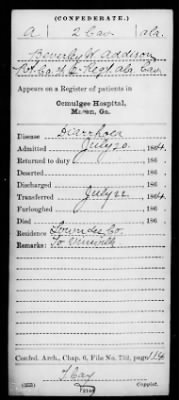 (CONFEDERATE.)
A 2 Cav Ala.
Beverly W Addison
Appears on a Register of patients in
Ocmulgee Hospital,
Macon, Ga.
Disease Diarrhoea
Admitted July 20, 1864
Returned to duty , 186
Deserted , 186
Discharged , 186
Transferred July 22 1864
Furloughed , 186
Died , 186
Residence Lowndes Co.
Remarks: To
Confed. Arch., Chap. 6, File No. 752, page
(635)
Copyist.